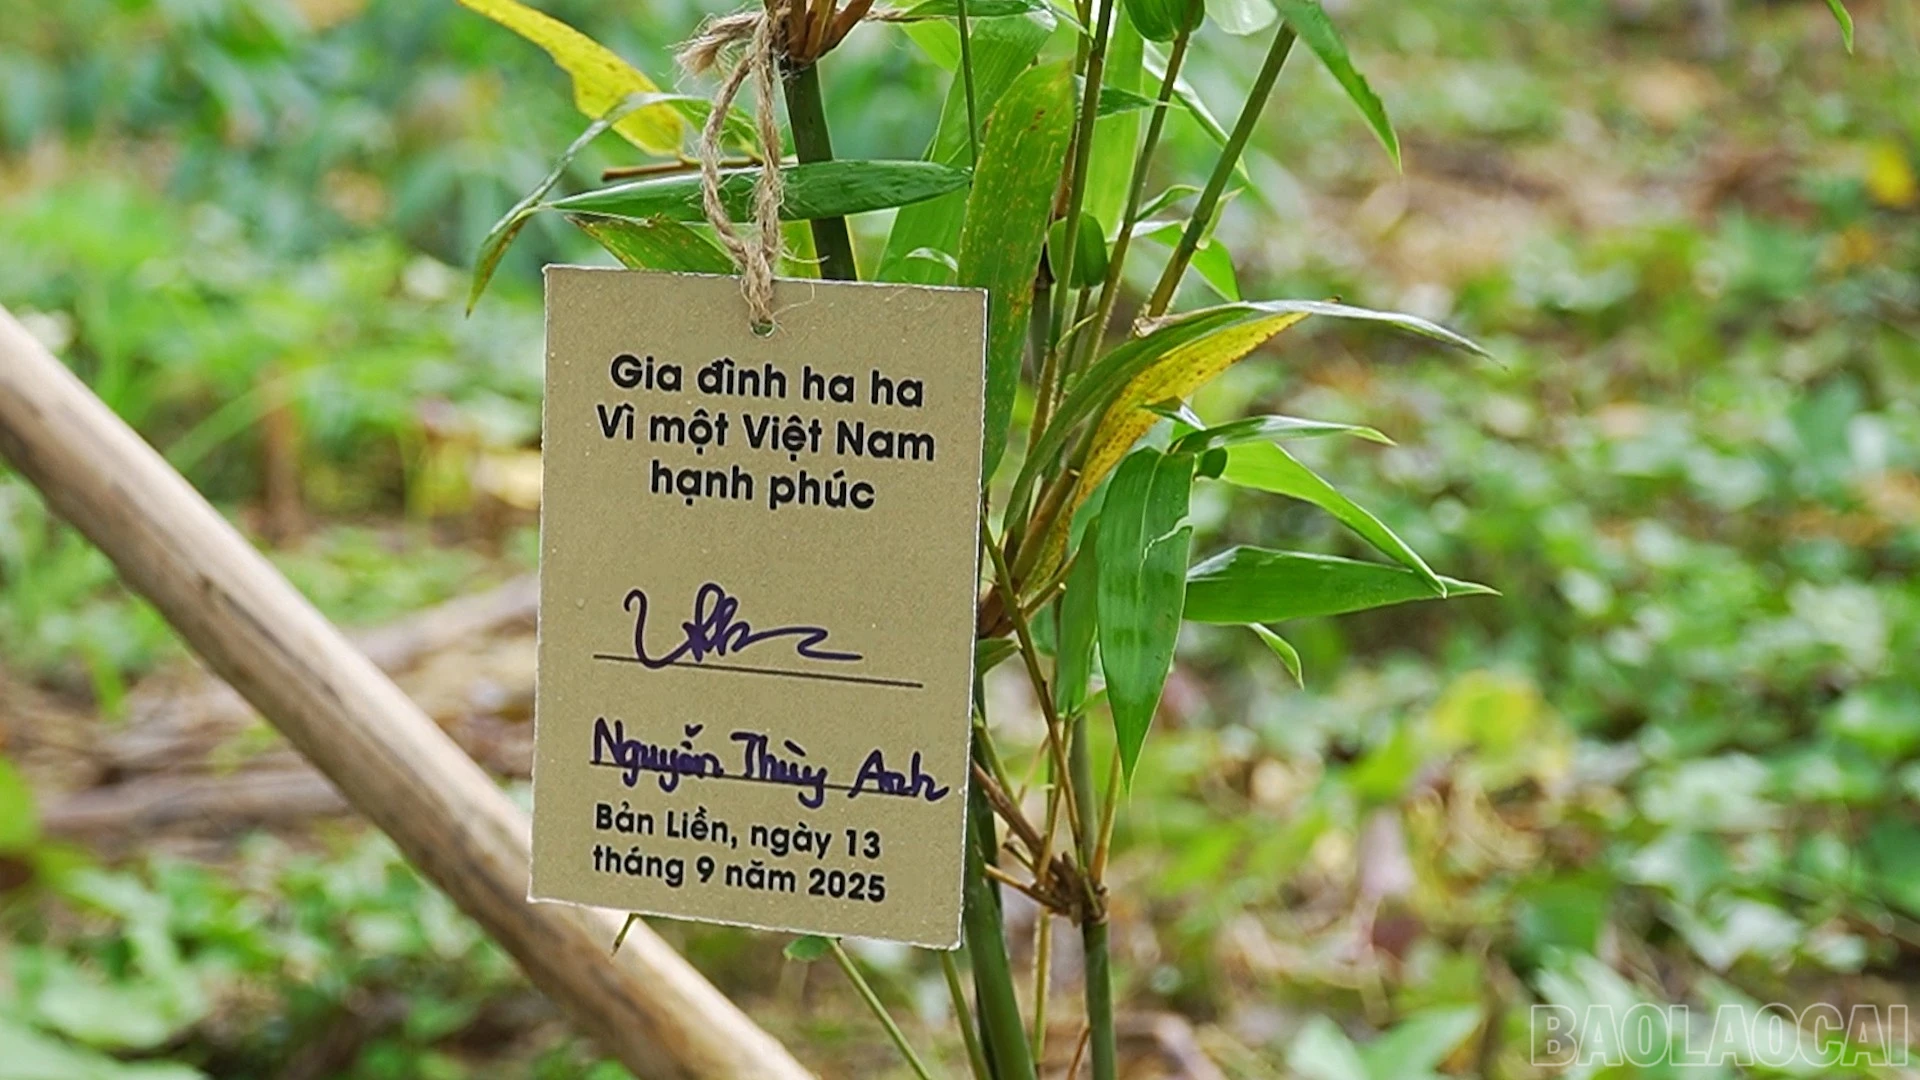 Gia đình ha ha
Vì một Việt Nam
hạnh phúc
Nguyễn Thùy Anh
Bản Liền, ngày 13
tháng 9 năm 2025
BAOLAOCAI